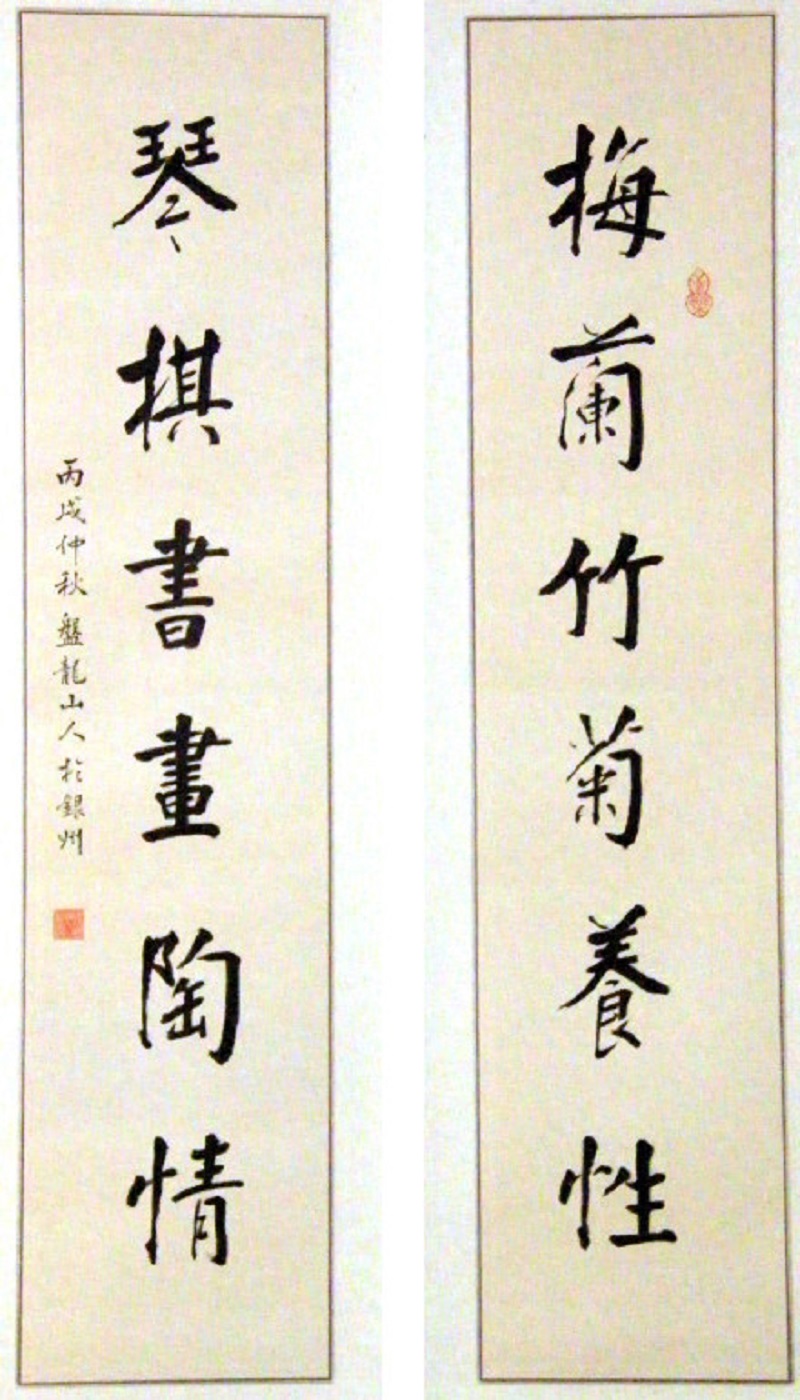 梅蘭竹菊養性
琴棋書畫陶情
丙戌仲秋 盤龍山人於銀州